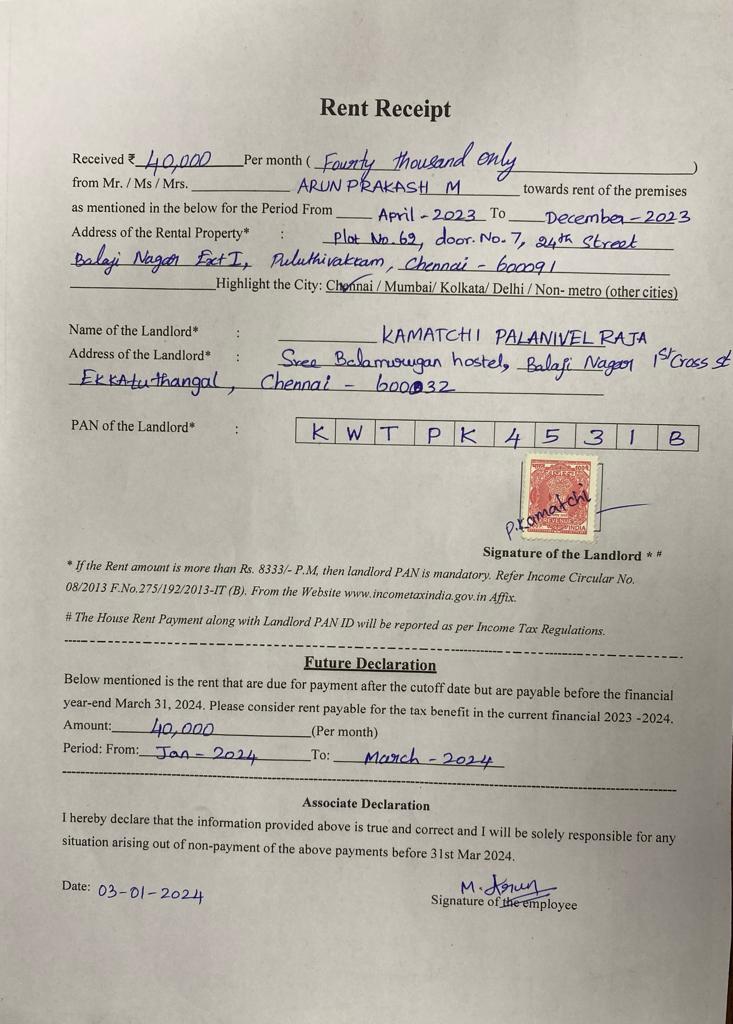 Rent Receipt
Received ₹ 40,000 Per month ( Fourty thousand only )
from Mr. / Ms / Mrs. ARUN PRAKASH M towards rent of the premises
as mentioned in the below for the Period From April - 2023 To December - 2023
Address of the Rental Property* : Plot No. 62, door. No. 7, 24th Street
Balaji Nagar Ext I, Puluthivakkam, Chennai - 600091
Highlight the City: Chennai / Mumbai/ Kolkata/ Delhi / Non- metro (other cities)
Name of the Landlord* : KAMATCHI PALANIVEL RAJA
Address of the Landlord* : Sree Balamurugan hostel, Balaji Nagar 1st Cross st
Ekkatuthangal, Chennai - 600032
PAN of the Landlord* : K W T P K 4 5 3 1 B
P. Kamatchi
REVENUE
INDIA
Signature of the Landlord * #
* If the Rent amount is more than Rs. 8333/- P.M, then landlord PAN is mandatory. Refer Income Circular No.
08/2013 F.No.275/192/2013-IT (B). From the Website www.incometaxindia.gov.in Affix.
# The House Rent Payment along with Landlord PAN ID will be reported as per Income Tax Regulations.
Future Declaration
Below mentioned is the rent that are due for payment after the cutoff date but are payable before the financial
year-end March 31, 2024. Please consider rent payable for the tax benefit in the current financial 2023 -2024.
Amount: 40,000 (Per month)
Period: From: Jan - 2024 To: March - 2024
Associate Declaration
I hereby declare that the information provided above is true and correct and I will be solely responsible for any
situation arising out of non-payment of the above payments before 31st Mar 2024.
Date: 03-01-2024
M. Arun
Signature of the employee